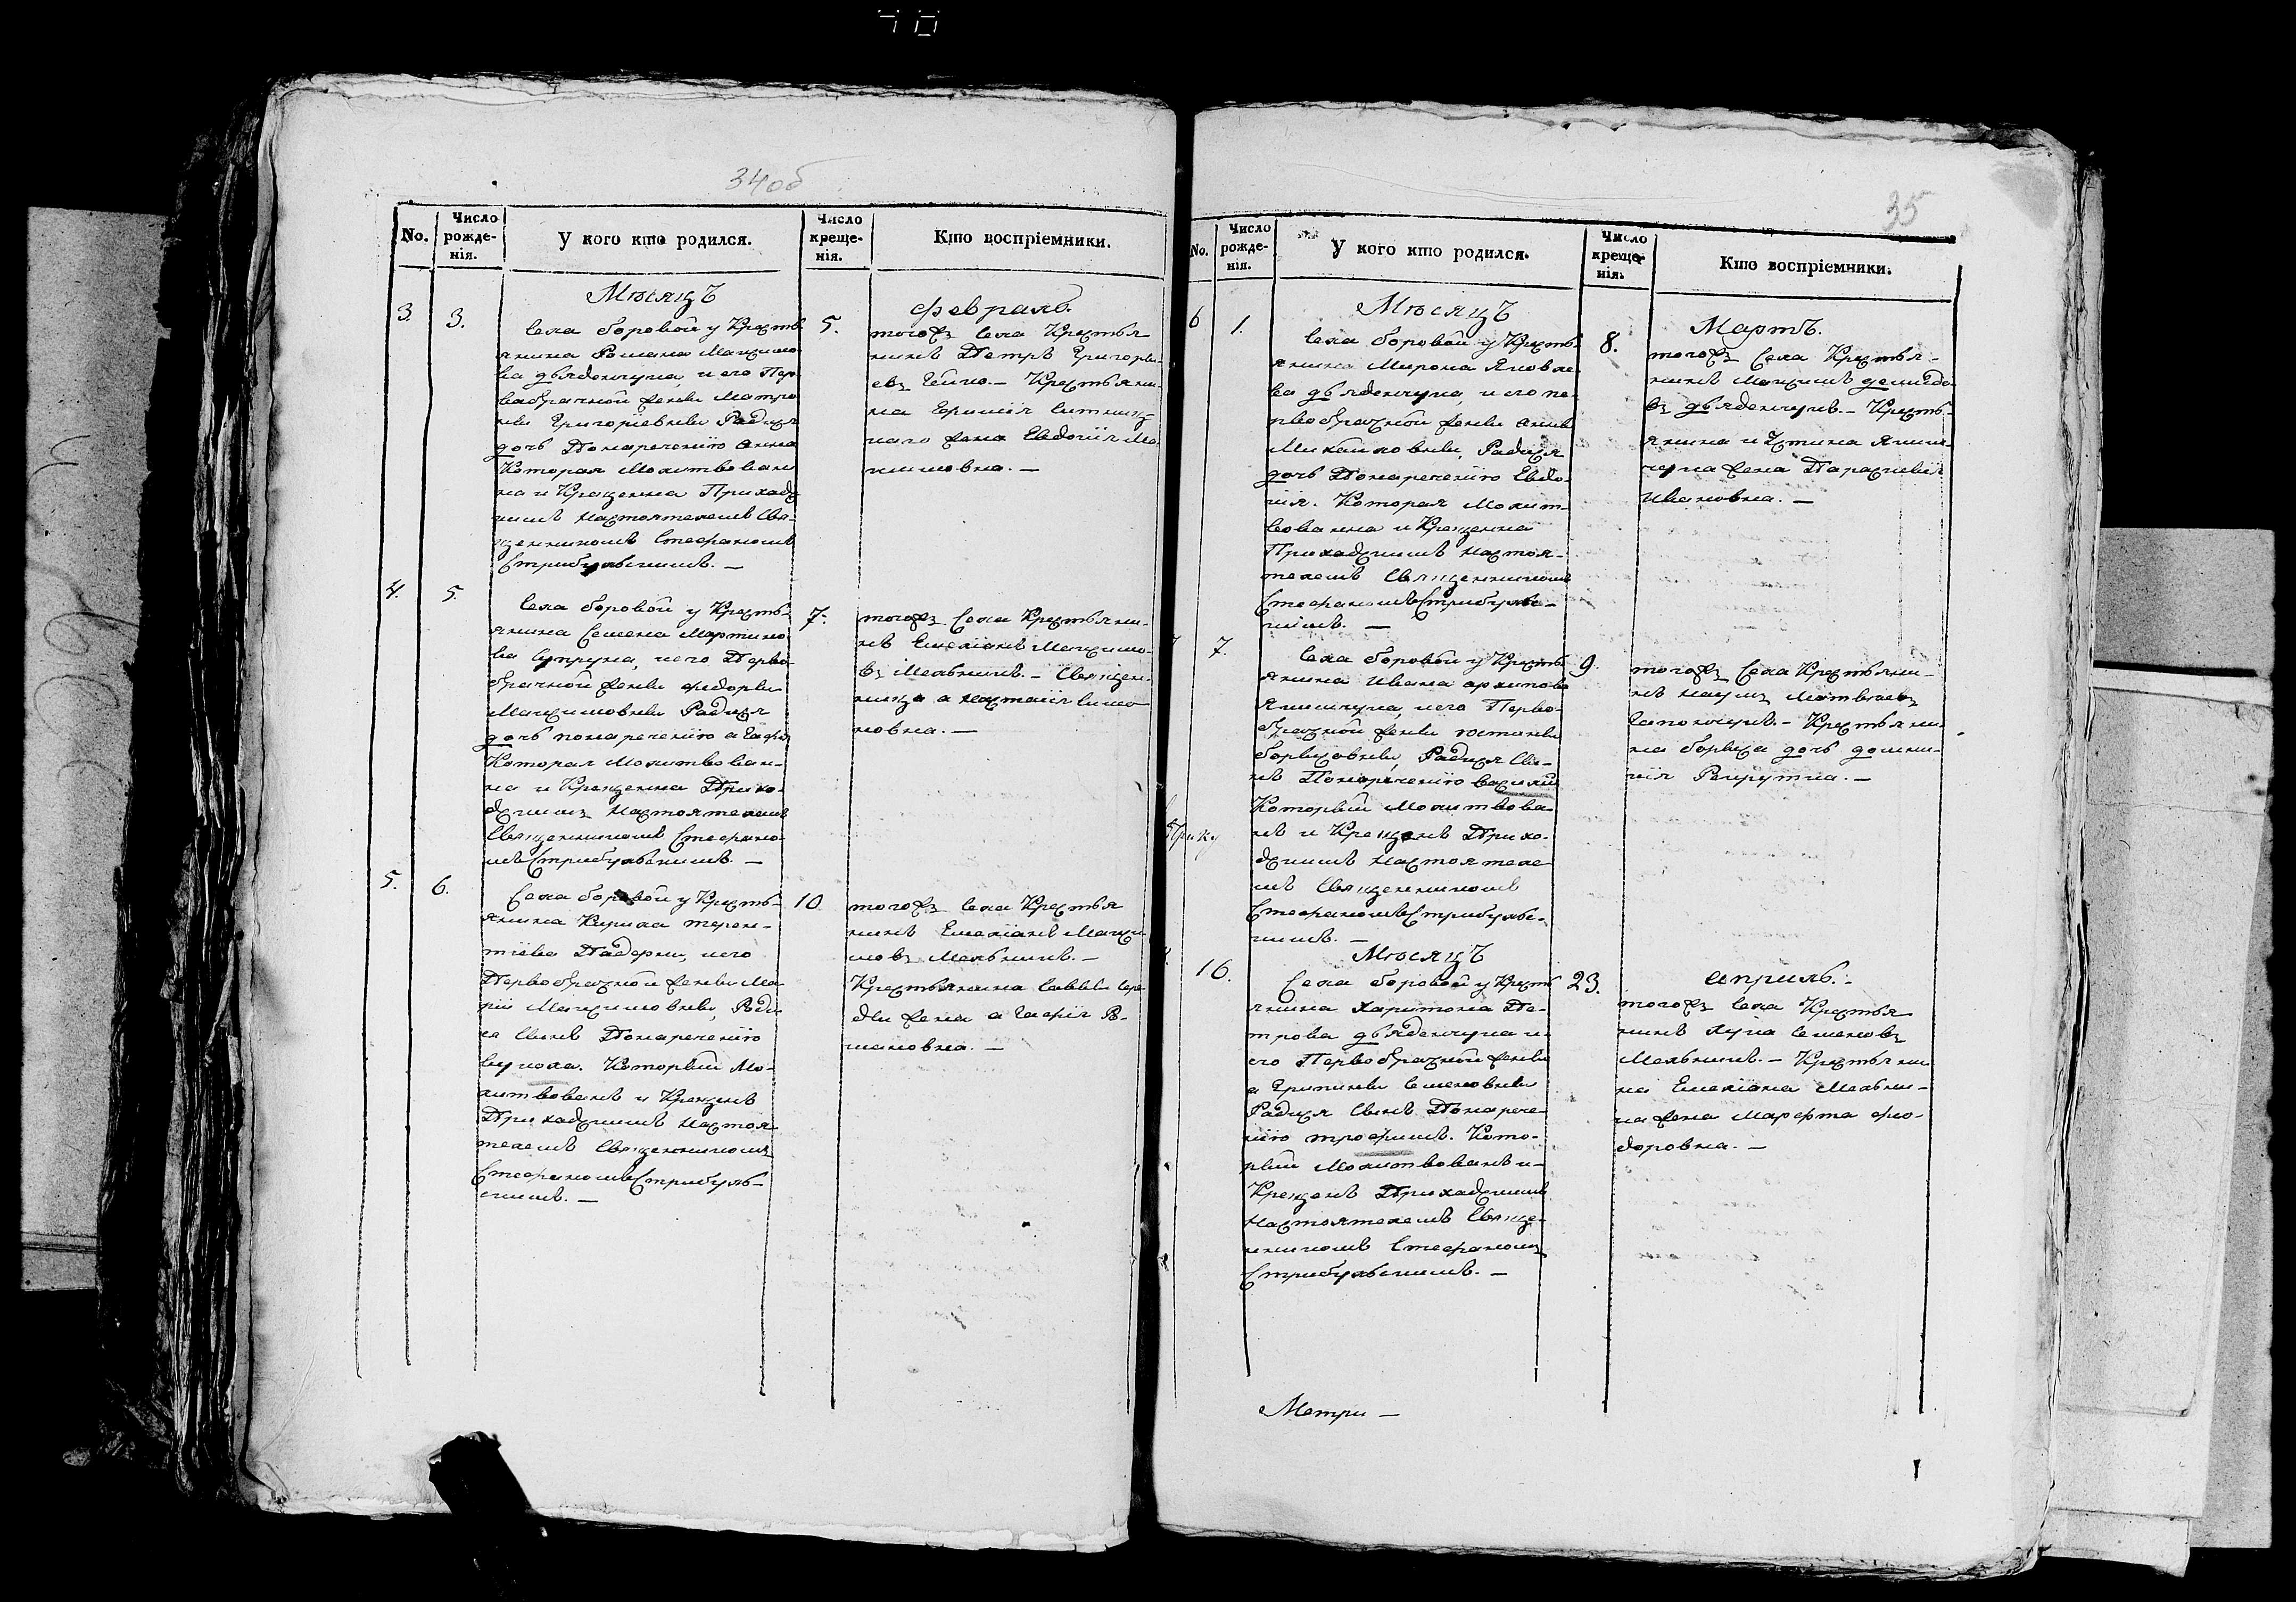 34об
No.
Число рожде-нія.
У кого кто родился.
Число креще-нія.
Кто воспріемники.
Мѣсяцъ
февраль.
3.
3.
Села боровой у Кресть
янина Романа Максимо
ва дьяденчука, и его Пер
вабрачной жены Матро
ны Григоріевны Радися
дочь Понареченію анна
Которая Молитвован
на и Крещенна Прихадс
кимъ Настоятелемъ Свя-
щенникомъ Стефаномъ
Стрибульскимъ. —
5.
тогожъ Села Крестья
нинъ Петръ Григорь-
евъ – Крестьяни-
на
жена Евдокія Ма
кимовна. —
4.
5.
Села боровой у Кресть-
янина Семена Мартино
ва Супруна, иего Перво-
брачной жены федоры
Максимовны Радися
дочь понареченію агафія
Которая Молитвован-
на и Крещенна Прихо-
дскимъ Настоятелемъ
Священникомъ Стефано-
мъ Стрибульскимъ. —
7.
тогожъ Села Крестьяни-
нъ Емеліанъ Максимо-
въ Мельникъ. – Священ-
ница анастасія Симо
новна. —
5.
6.
Села боровой у Кресть-
янина Кирила терен-
тіева Падерки, иего
Первобрачной жены Ма-
ріи Максимовны, Ради
ся Сынъ Понареченію
вукола. Который Мо-
литвованъ и Крещенъ
Прихадскимъ Настоя-
телемъ Священникомъ
Стефаномъ Стрибуль-
скимъ. —
10.
тогожъ Села Крестья
нинъ Емеліанъ Макси
мовъ Мельникъ. —
Крестьянина Саввы Сере
ды жена агафія Ро-
мановна. —
35
No.
Число рожде-нія.
У кого кто родился.
Число креще-нія.
Кто воспріемники.
Мѣсяцъ
Мартъ.
6
1.
Села боровой у Кресть-
янина Мирона Яковле
ва дьяденчука, и его пе-
рвобрачной жены анны
Михайловны, Радися
дочь Понареченію Евдо-
кія. Которая Молит-
вованна и Крещенна
Прихадскимъ Настоя-
телемъ Священникомъ
Стефаномъ Стрибульс-
кимъ. —
8.
тогожъ Села Крестья-
нинъ Максимъ демидо-
въ дьяденчукъ. – Кресть-
янина Яким-
чука жена Параскевия
Ивановна. —
7
7.
Села боровой у Кресть
янина Ивана архипова
Якимчука, иего Перво-
брачной жены юстины
борисовны, Радися Сы-
нъ Понареченію василій
Который Молитвова-
нъ и Крещенъ Прихо-
дскимъ Настояте-
мъ Священникомъ
Стефаномъ Стрибульс-
кимъ. —
9.
тогожъ Села Крестьяни-
нъ Наумъ Матвеевъ
Гапончукъ. – Крестьяни-
на бориса дочь домни-
кія Рекрутка. —
Мѣсяцъ
априль.
16.
Села боровой у Кресть
янина Харитона Пе-
трова дьяденчука и-
его Первобрачной жены
агрипины Семеновны
Радися Сынъ Понарече
нію трофимъ. Кото-
рый Молитвованъ и-
Крещенъ Прихадскимъ
Настоятелемъ Свяще-
нникомъ Стефаномъ
Стрибульскимъ. —
23.
тогожъ Села Крестья
нинъ лука Семеновъ
Мельникъ. – Крестьяни
на Емеліана Мельни-
ка жена Марфта фео-
доровна. —
Метри —